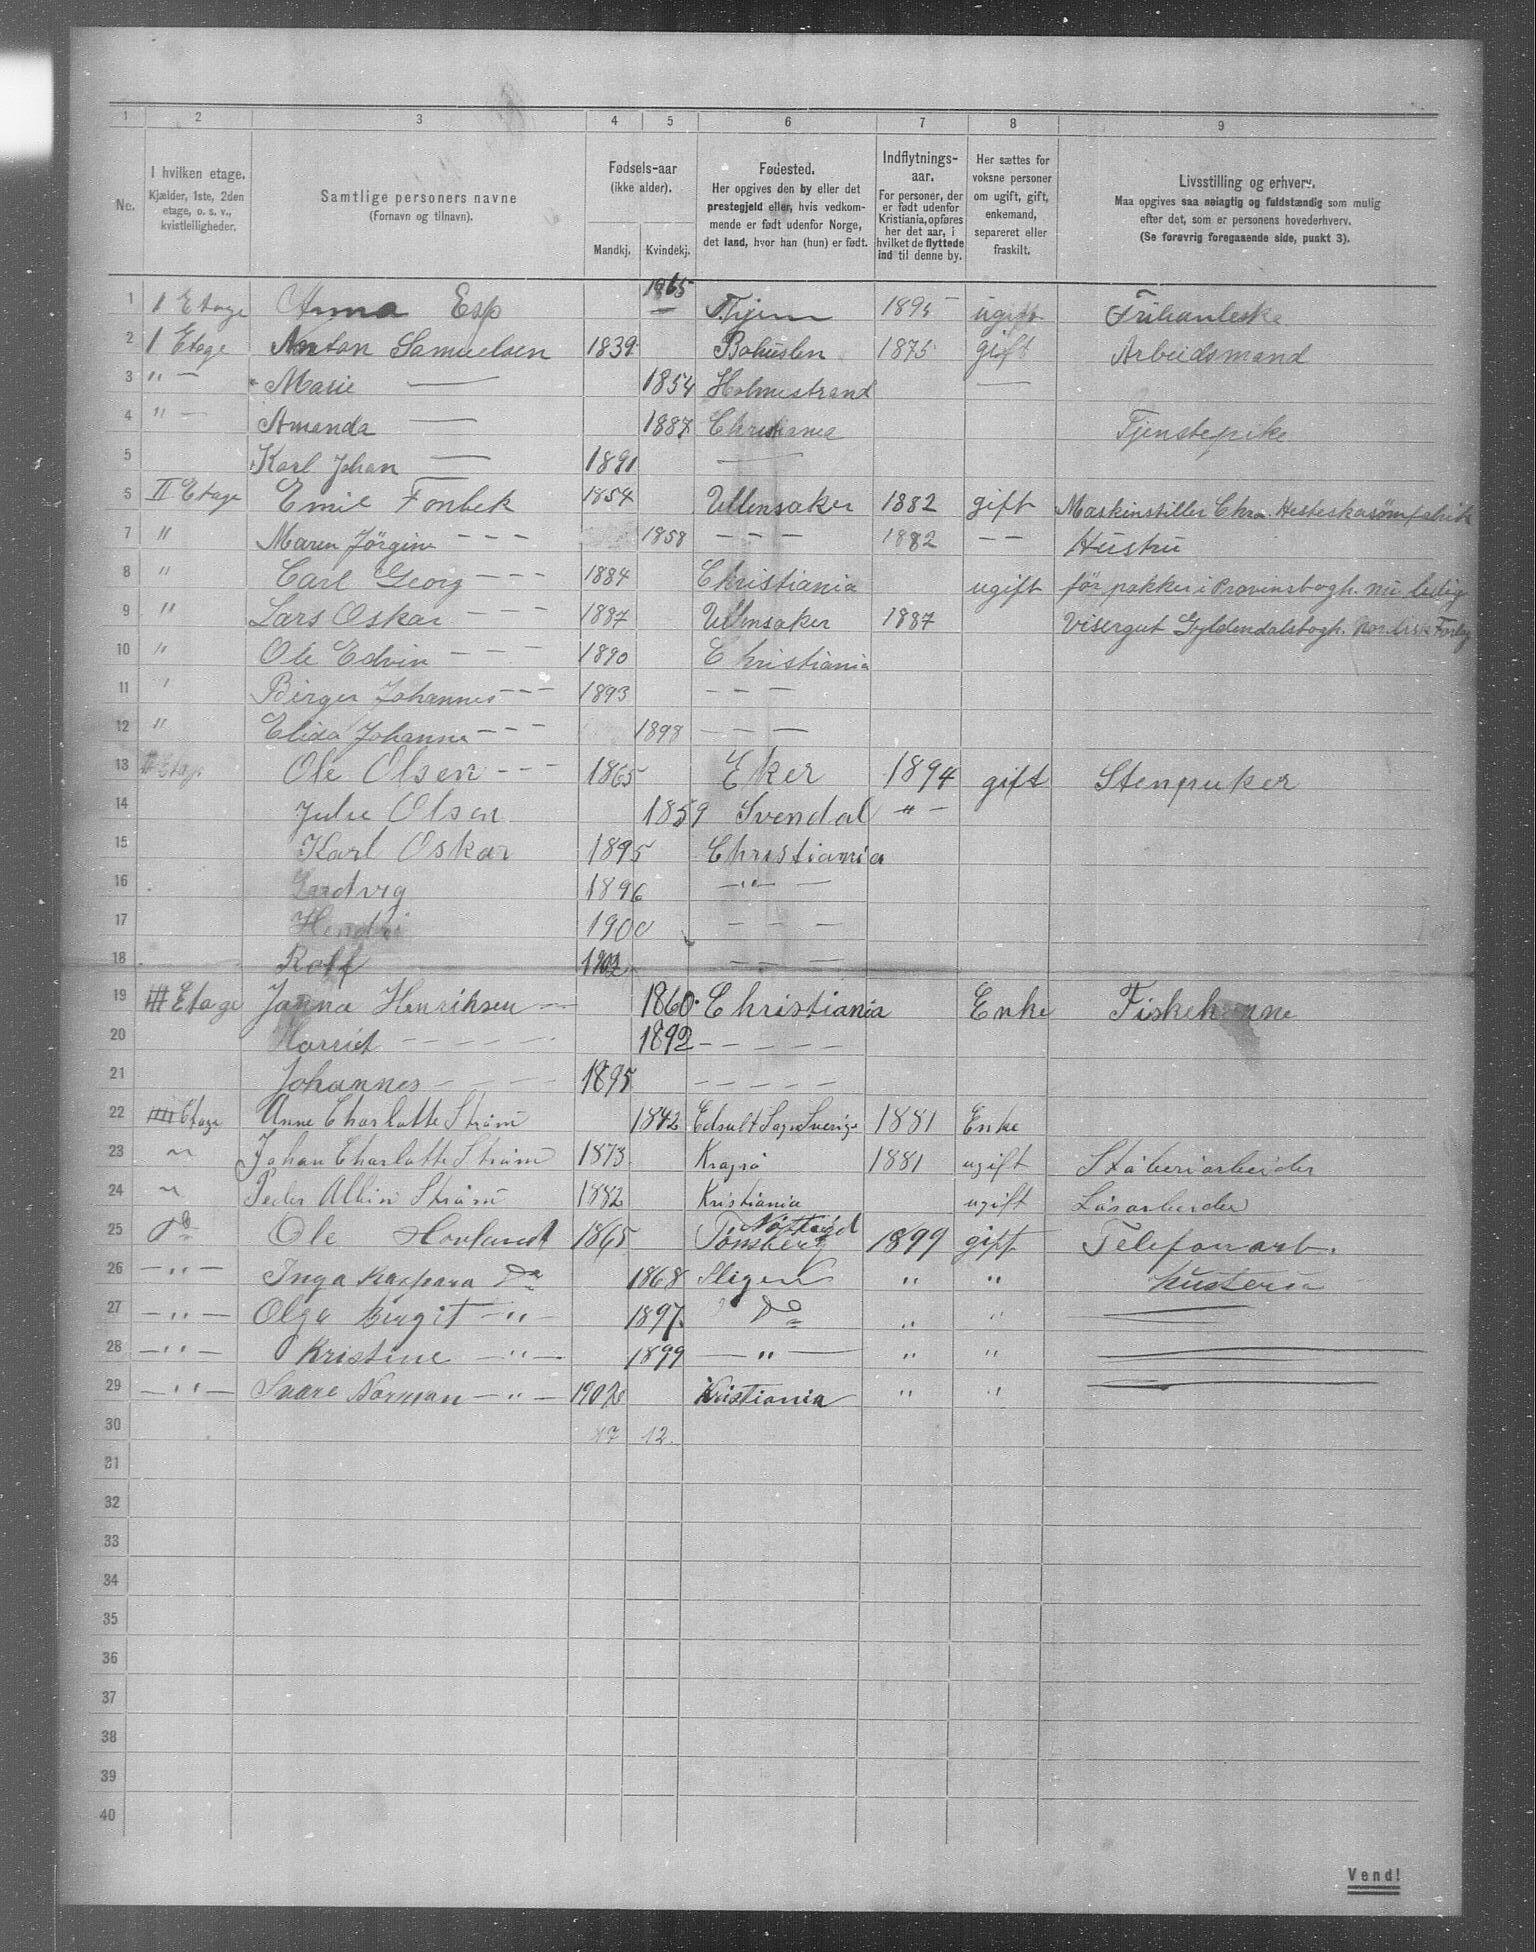 1 2 3 4 5 6 7 8 9
No. I hvilken etage. Kjælder, 1ste, 2den etage, o. s. v., kvistleiligheder. Samtlige personers navne (Fornavn og tilnavn). Fødsels-aar (ikke alder). Mandkj. Kvindekj. Fødested. Her opgives den by eller det prestegjeld eller, hvis vedkommende er født udenfor Norge, det land, hvor han (hun) er født. Indflytnings-aar. For personer, der er født udenfor Kristiania, opføres her det aar, i hvilket de flyttede ind til denne by. Her sættes for voksne personer om ugift, gift, enkemand, separeret eller fraskilt. Livsstilling og erhverv. Maa opgives saa nøiagtig og fuldstændig som mulig efter det, som er personens hovederhverv. (Se forøvrig foregaaende side, punkt 3).
1 1 Etage Anna Esp 1865 1895 ugift
2 1 Etage Anton Samuelsen 1839 Bohuslen 1875 gift Arbeidsmand
3 " — Marie — 1854 Holmestrand —
4 " — Amanda — 1887 Christiania Tjenstepike
5 Karl Johan — 1891 —
6 II Etage Emil Fonbek 1854 Ullensaker 1882 gift Maskinstiller Chra. Hesteskosømfabrik
7 " Maren Jörgine - - - 1858 - - - 1882 - - Hustru
8 " Carl Georg - - - 1884 Christiania ugift för pakker i Provinsbogh. nu ledig
9 " Lars Oskar 1887 Ullensaker 1887 Visergut Gyldendalsbogh. Nordisk Forlag
10 " Ole Edvin - - - 1890 Christiania
11 " Birger Johannes - - - 1893 - - -
12 " Elida Johanne - - - 1898 - - -
13 II Etage Ole Olsen - - - 1865 Eker 1894 gift Stenpuker
14 Julie Olsen 1859 Svendal " -
15 Karl Oskar 1895 Christiania
16 1896 - " -
17 1900 - - -
18 Rolf 1902 - - -
19 III Etage Janna Henriksen - - 1860 Christiania Enke Fiskekonne
20 Harriet - - - - - 1892 - - - - -
21 Johannes - - - - 1895 - - - - -
22 IIII Etage Anne Charlotte Ström 1842 Edsult Sogn Sverige 1881 Enke
23 " Johan Charlotte Ström 1873 Kragrö 1881 ugift Stöberiarbeider
24 " Peder Albin Ström 1882 Kristiania ugift
25 Do Ole Hovlandt 1865 Nötteröd Tönsberg 1899 gift Telefonarb.
26 — " — Inga Kaspara Do 1868 " " husteru
27 — " — Olga Birgit — " — 1897 Do " "
28 — " — Kristine — " — 1899 — " — " "
29 — " — Norman — " — 1902 Kristiania " "
30 17 12.
31
32
33
34
35
36
37
38
39
40
Vend!